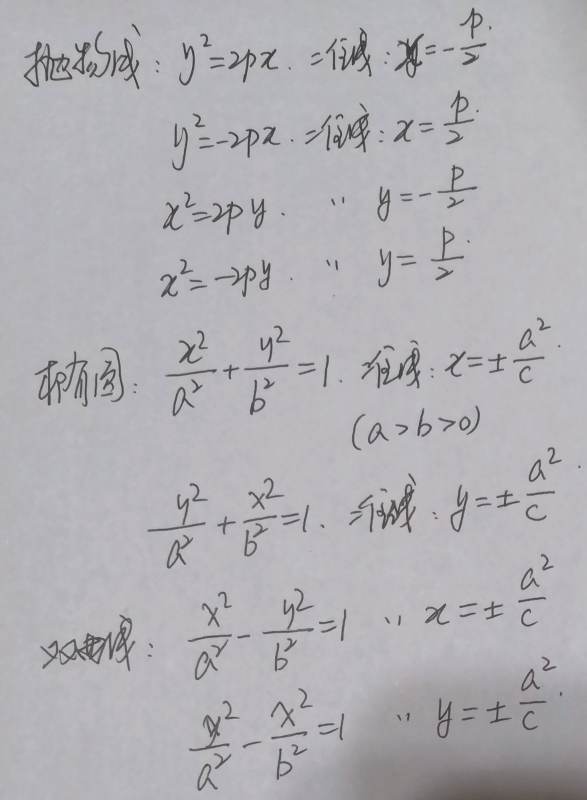 抛物线: y²=2px. 准线: x=-p/2.
y²=-2px. 准线: x=p/2.
x²=2py. 〃 y=-p/2
x²=-2py. 〃 y=p/2
椭圆: x²/a²+y²/b²=1. 准线: x=±a²/c.
(a>b>0)
y²/a²+x²/b²=1. 准线: y=±a²/c.
双曲线: x²/a²-y²/b²=1 〃 x=±a²/c
y²/a²-x²/b²=1 〃 y=±a²/c.